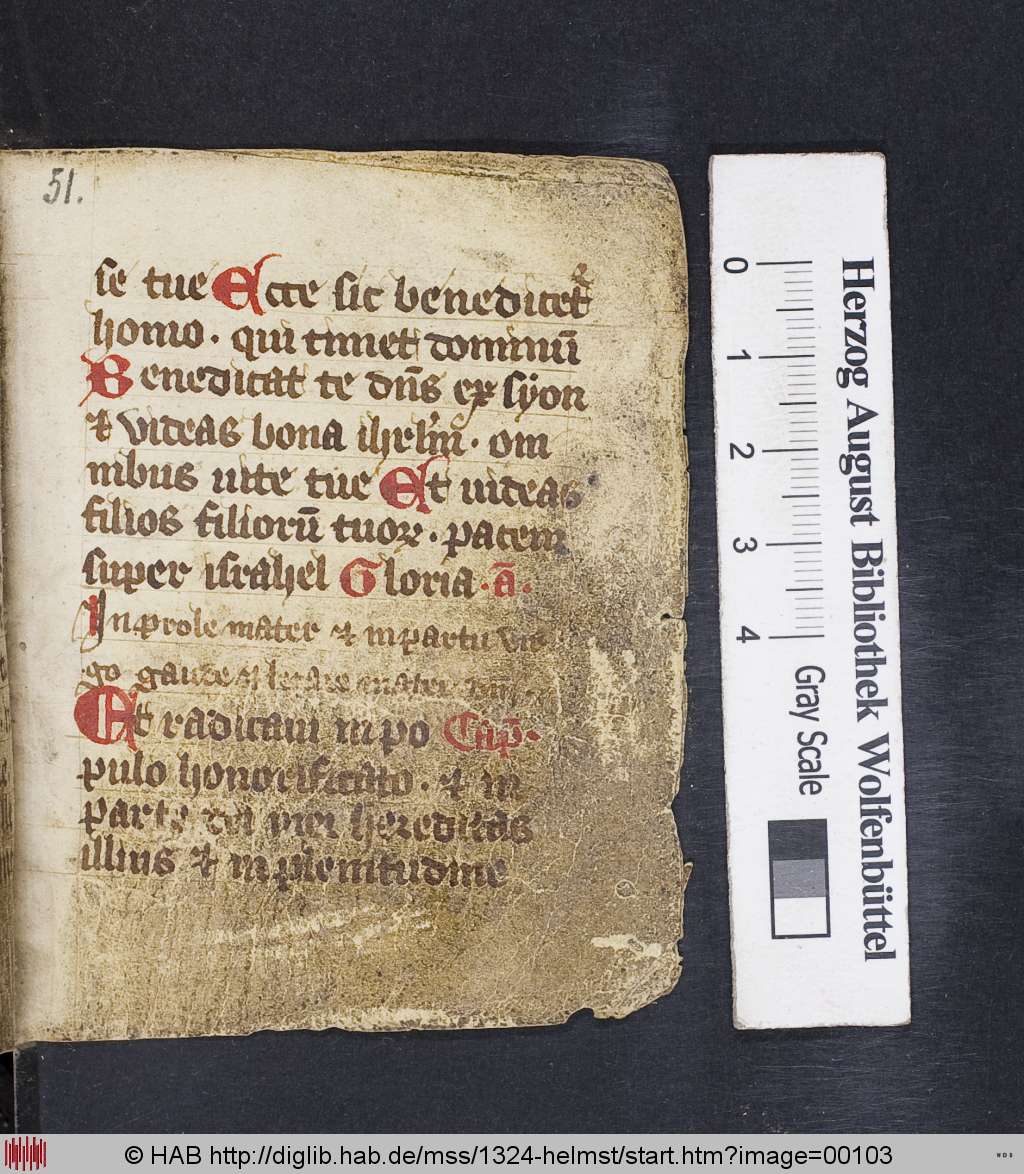 51.
se tue Ecce sic benedicetr
homo · qui timet dominū
Benedicat te dn̄s ex syon
⁊ videas bona ihrl̄m · om
nibus uite tue Et uideas
filios filiorū tuoꝝ · pacem
super israhel Gloria · ā ·
In prole mater ⁊ in partu vir
go gaude ⁊ letare mater
Et radicaui in po Cap̄ ·
pulo honorificato · ⁊ in
parte dei mei hereditas
illius ⁊ in plenitudine
0
1
2
3
4
Gray Scale
Herzog August Bibliothek Wolfenbüttel
© HAB http://diglib.hab.de/mss/1324-helmst/start.htm?image=00103